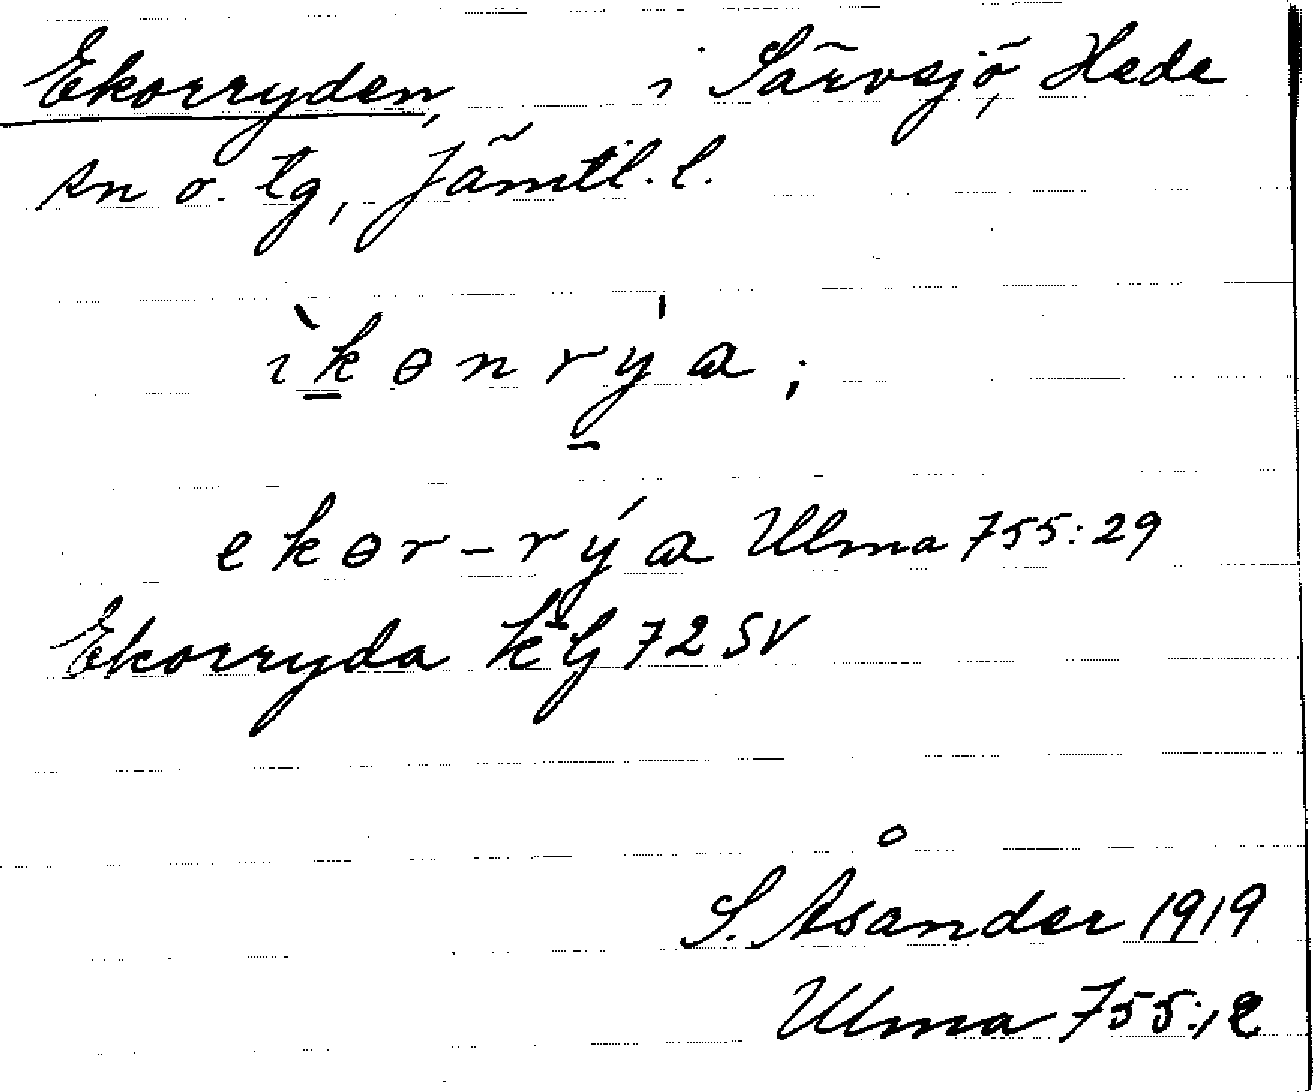 Ekorryden, i Särvsjö, Hede
sn o. tg, Jämtl. l.
ìkɵnrýa;
ekɵr-rýa Ulma 755:29
Ekorryda kG 72 SV
S. Åsander 1919
Ulma 755: